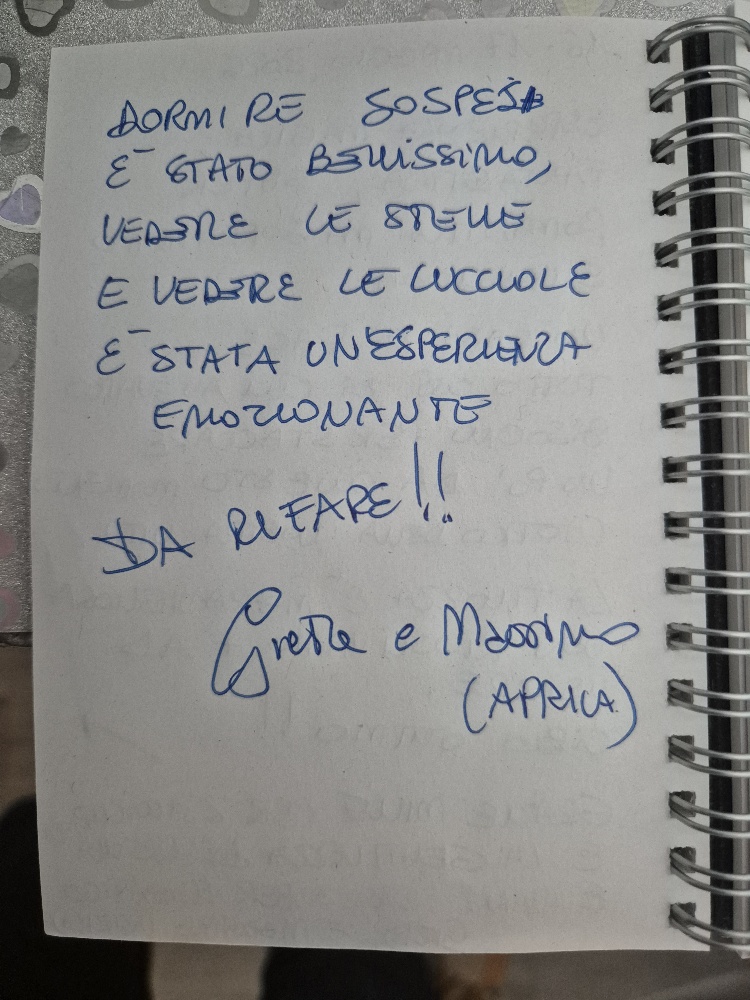 DORMIRE SOSPESI
E' STATO BELLISSIMO,
VEDERE LE STELLE
E VEDERE LE LUCCIOLE
E' STATA UN'ESPERIENZA
EMOZIONANTE
DA RIFARE!!
Greta e Massimo
(APRICA)